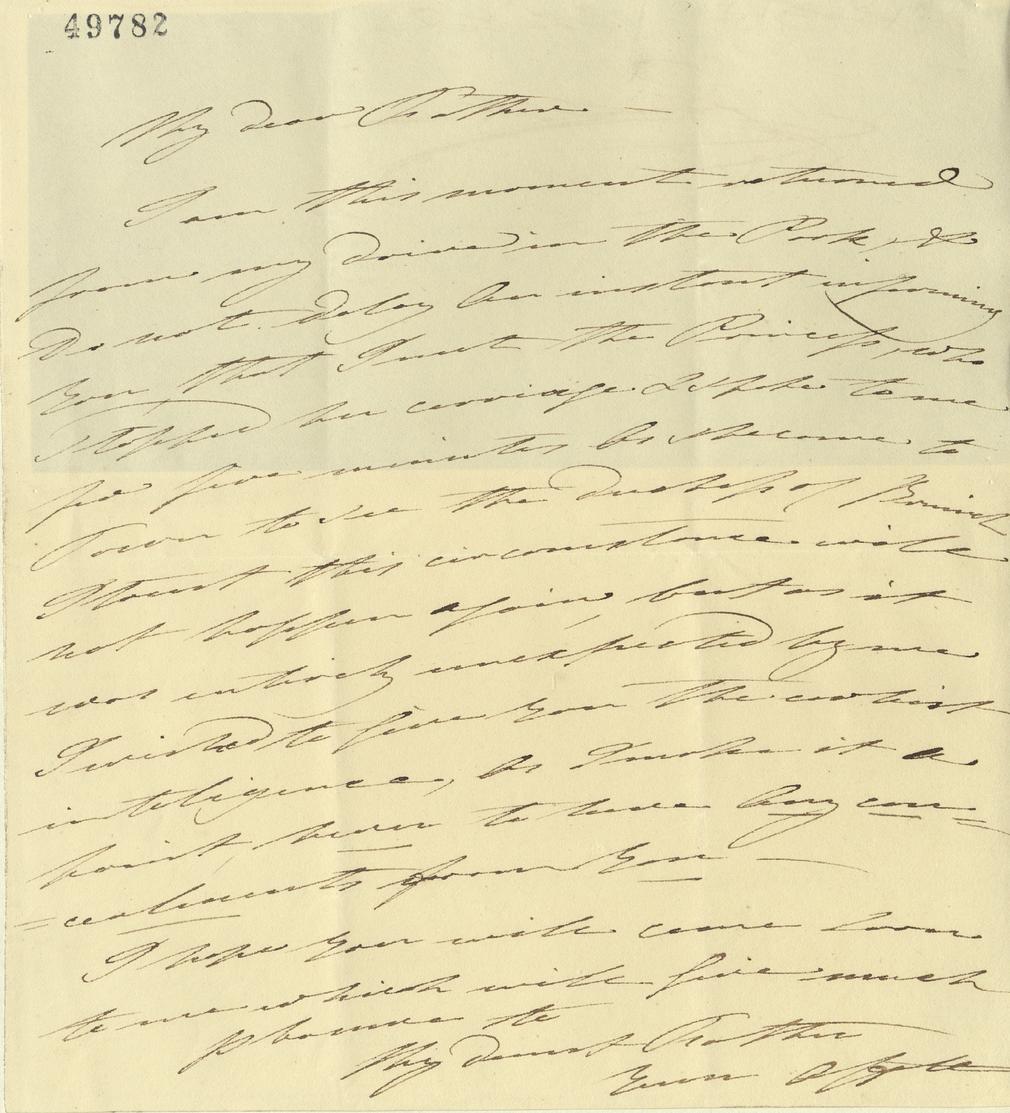 49782
My dear Brother
I am this moment returned
from my drive in the Park, &
do not delay an instant informing
you that I met the Princess, who
stopped her carriage & spoke to me
for five minutes as she came to
Town to see the Duchess of Brunswick
I trust this circumstance will
not happen again, but as it
was entirely unexpected by me
I wished to give you the earliest
inteligence, as I make it a
point, never to have any con=
=cealments from you
I hope you will come soon
to me which will give much
pleasure to
My dearest Brother
Yours Affte